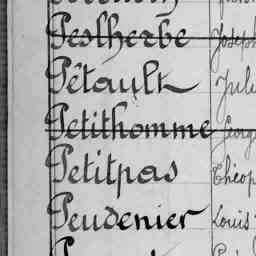 Peslherbe Joseph
Pétault Jule
Petithomme Georg
Petitpas Théop
Peudenier Louis